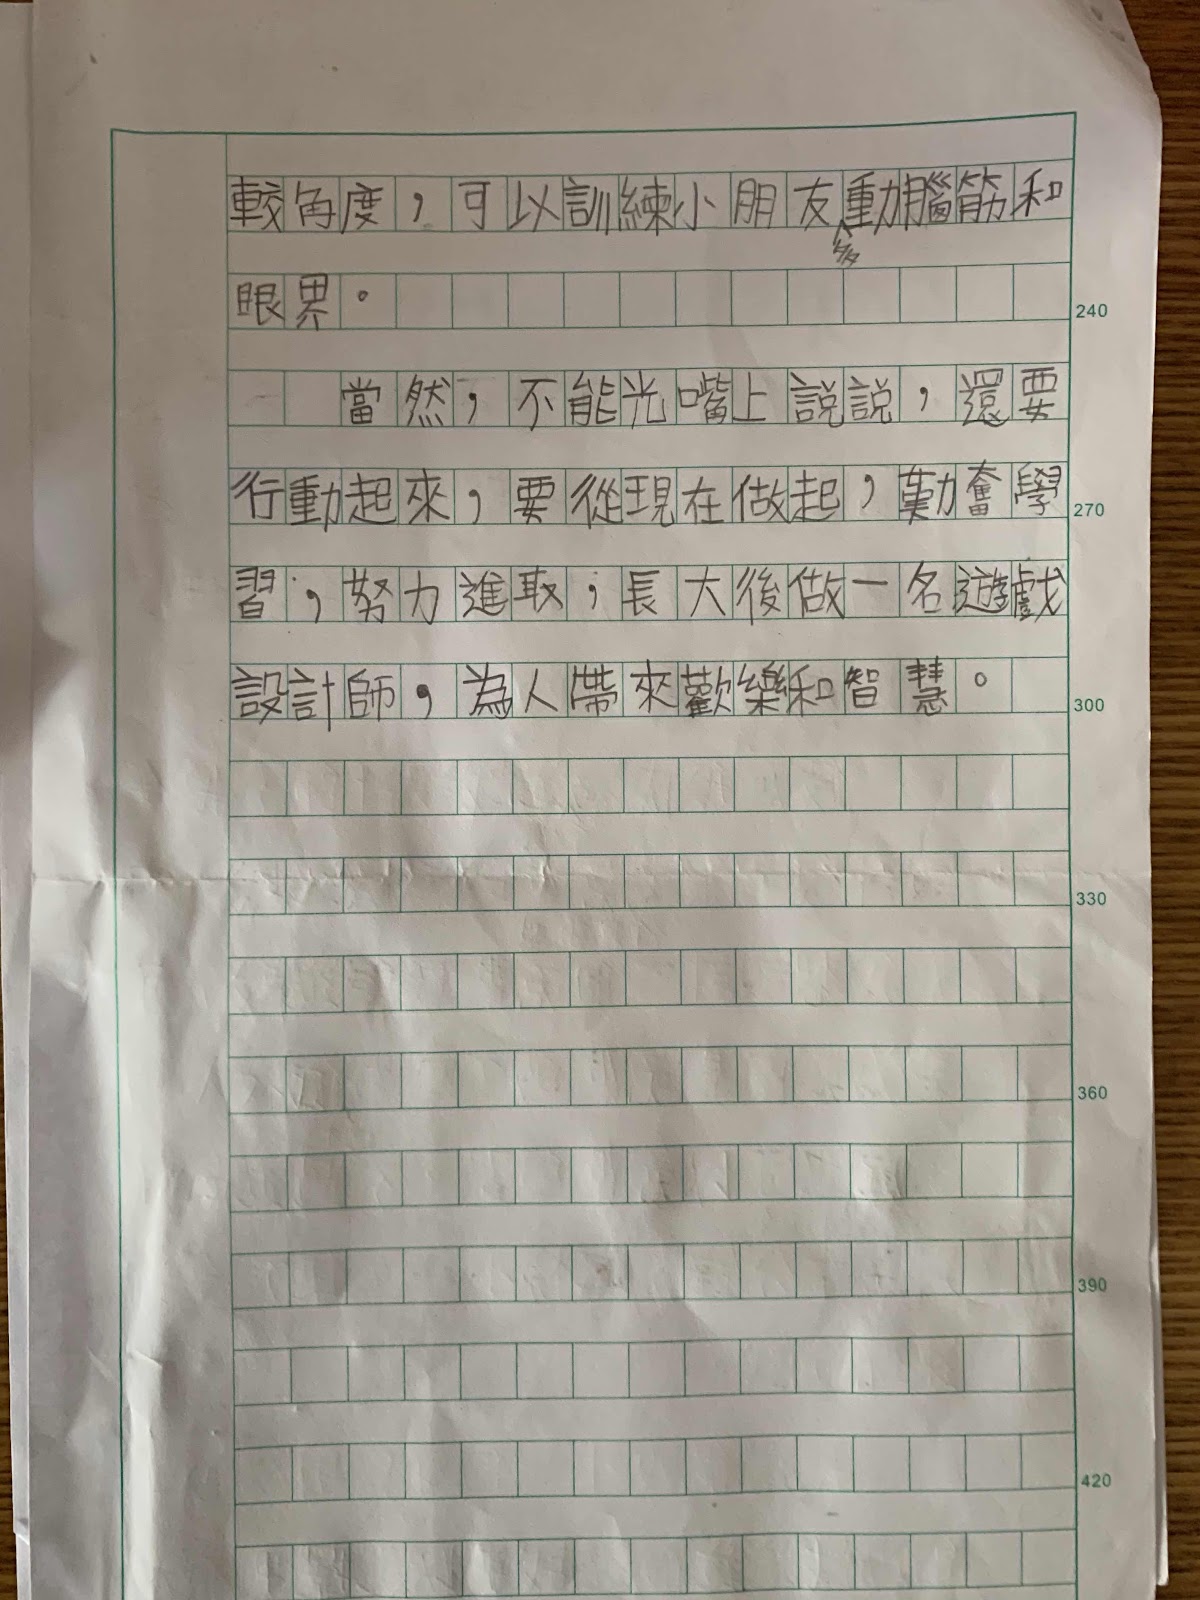 較角度，可以訓練小朋友多動腦筋和
眼界。
240
當然，不能光嘴上說說，還要
行動起來，要從現在做起，勤奮學
270
習，努力進取，長大後做一名遊戲
設計師，為人帶來歡樂和智慧。
300
330
360
390
420